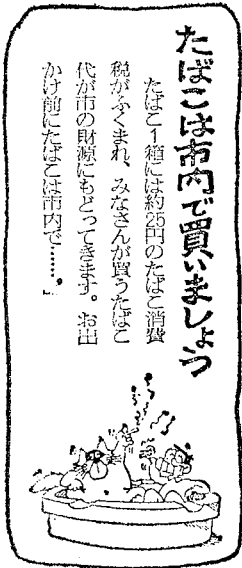 たばこは市内で買いましょう
たばこ1箱には約25円のたばこ消費
税がふくまれ、みなさんが買うたばこ
代が市の財源にもどってきます。お出
かけ前にたばこは市内で……。